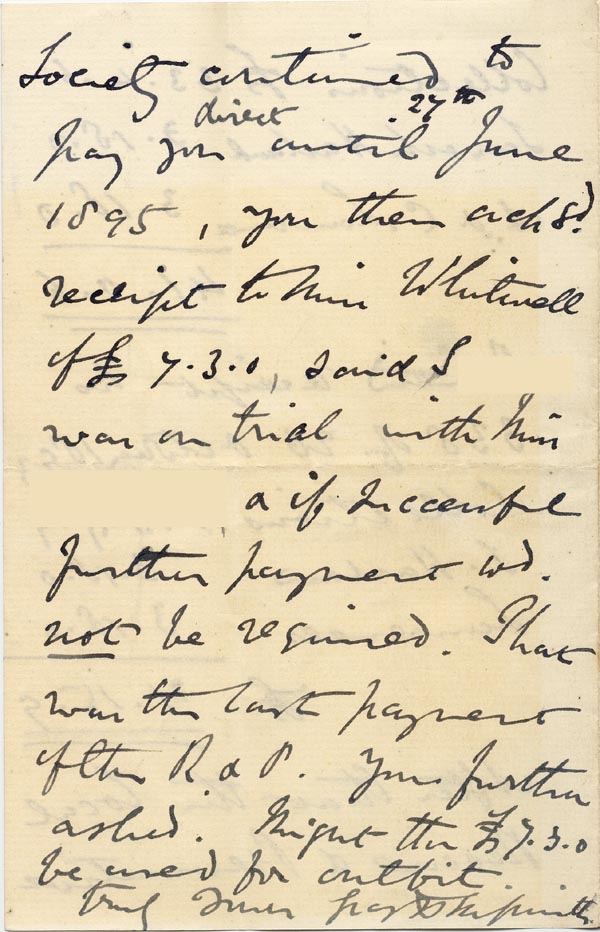 Society continued to
pay you direct until 27th June
1895, you then ackd.
receipt to Miss Whitwell
of £7.3.0, said S
was on trial with Miss
& if successful
further payment wd.
not be required. That
was the last payment
of the R & P. You further
asked. Might the £7.3.0
be used for outfit
truly Yours